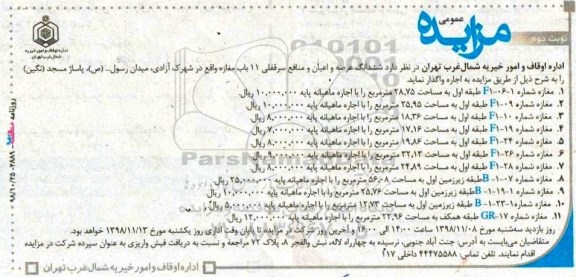 نوبت دوم
مزایده
عمومی
اداره اوقاف و امور خیریه شمال‌غرب تهران
اداره اوقاف و امور خیریه شمال‌غرب تهران در نظر دارد ششدانگ عرصه و اعیان و منافع سرقفلی ۱۱ باب مغازه واقع در شهرک آزادی، میدان رسول... (ص)، پاساژ مسجد (نگین)
را به شرح ذیل از طریق مزایده به اجاره واگذار نماید.
۱. مغازه شماره F۱-۰۶-۱ طبقه اول به مساحت ۲۸.۷۵ مترمربع را با اجاره ماهیانه پایه ۱۰,۰۰۰,۰۰۰ ریال.
۲. مغازه شماره F۱-۰۹ طبقه اول به مساحت ۲۵.۹۵ مترمربع را با اجاره ماهیانه پایه ۱۰,۰۰۰,۰۰۰ ریال.
۳. مغازه شماره F۱-۱۰ طبقه اول به مساحت ۱۸.۳۶ مترمربع را با اجاره ماهیانه پایه ۸,۰۰۰,۰۰۰ ریال.
۴. مغازه شماره F۱-۱۹ طبقه اول به مساحت ۱۷.۱۶ مترمربع را با اجاره ماهیانه پایه ۷,۰۰۰,۰۰۰ ریال.
۵. مغازه شماره F۱-۲۴ طبقه اول به مساحت ۱۹.۸۶ مترمربع را با اجاره ماهیانه پایه ۷,۰۰۰,۰۰۰ ریال.
۶. مغازه شماره F۱-۲۶ طبقه اول به مساحت ۲۲.۱۳ مترمربع را با اجاره ماهیانه پایه ۸,۰۰۰,۰۰۰ ریال.
۷. مغازه شماره F۱-۲۸ طبقه اول به مساحت ۲۴.۸۹ مترمربع را با اجاره ماهیانه پایه ۸,۰۰۰,۰۰۰ ریال.
۸. مغازه شماره B-۱-۰۷ طبقه زیرزمین اول به مساحت ۵۶.۰۸ مترمربع را با اجاره ماهیانه پایه ۲۵,۰۰۰,۰۰۰ ریال.
۹. مغازه شماره B-۱-۱۹-۱ طبقه زیرزمین اول به مساحت ۲۵.۷۶ مترمربع را با اجاره ماهیانه پایه ۱۰,۲۰۰,۰۰۰ ریال.
۱۰. مغازه شماره B-۱-۲۳-۱ طبقه زیرزمین اول به مساحت ۱۲.۷۳ مترمربع را با اجاره ماهیانه پایه ۵,۰۰۰,۰۰۰ ریال.
۱۱. مغازه شماره GR-۱۷ طبقه همکف به مساحت ۲۲.۹۶ مترمربع را با اجاره ماهیانه پایه ۱۲,۰۰۰,۰۰۰ ریال.
روز بازدید سه‌شنبه مورخ ۱۳۹۸/۱۱/۰۸ ساعت ۱۴:۰۰ الی ۱۶:۰۰ و آخرین روز شرکت در مزایده تا پایان وقت اداری روز یکشنبه مورخ ۱۳۹۸/۱۱/۱۳ خواهد بود.
متقاضیان می‌بایست به آدرس: جنت آباد جنوبی، نرسیده به چهارراه لاله، نبش والفجر ۸، پلاک ۷۲ مراجعه و نسبت به دریافت فیش واریزی به عنوان سپرده شرکت در مزایده
اقدام نمایند. تلفن تماس: ۴۴۴۷۵۵۸۸ داخلی ۱۷
اداره اوقاف و امور خیریه شمال‌غرب تهران
ParsNamadData